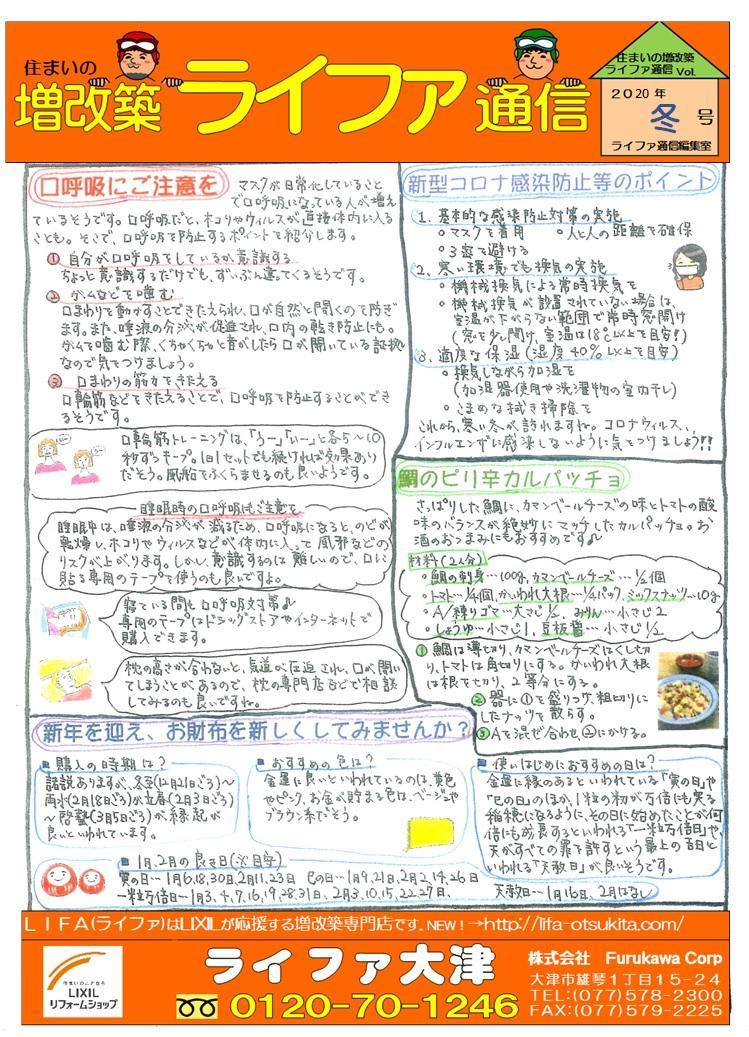 住まいの
増改築 ライファ通信
住まいの増改築
ライファ通信 Vol.
2020年
冬号
ライファ通信編集室
口呼吸にご注意を
マスクが日常化していること
で口呼吸になっている人が増え
ているそうです。口呼吸だと、ホコリやウィルスが直接体内に入る
ことも。そこで、口呼吸を防止するポイントを紹介します。
① 自分が口呼吸をしているか意識する
ちょっと意識するだけでも、ずいぶん違ってくるそうです。
② ガムなどを噛む
口まわりを動かすことできたえられ、口が自然と開くのを防ぎ
ます。また、唾液の分泌が促進され、口内の乾き防止にも。
ガムを噛む際、くちゃくちゃと音がしたら口が開いている証拠
なので気をつけましょう。
③ 口まわりの筋力をきたえる
口輪筋などをきたえることで、口呼吸を防止することができ
るそうです。
口輪筋トレーニングは、「うー」「いー」と各5〜10
秒ずつキープ。1日1セットでも続ければ効果あり
だそう。風船をふくらませるのも良いようです。
睡眠時の口呼吸もご注意を
睡眠中は、唾液の分泌が減るため、口呼吸になると、のどが
乾燥し、ホコリやウィルスなどが体内に入って風邪などの
リスクが上がります。しかし、意識するのは難しいので、口に
貼る専用のテープを使うのも良いですよ。
寝ている間も口呼吸対策♪
専用のテープはドラッグストアやインターネットで
購入できます。
枕の高さが合わないと、気道が圧迫され、口が開い
てしまうことがあるので、枕の専門店などで相談
してみるのも良いですね。
新型コロナ感染防止等のポイント
1. 基本的な感染防止対策の実施
○マスクを着用 ○人と人の距離を確保
○3密を避ける
2. 寒い環境でも換気の実施
○機械換気による常時換気を
○機械換気が設置されていない場合は、
室温が下がらない範囲で常時窓開け
(窓を少し開け、室温は18℃以上を目安!)
3. 適度な保湿(湿度40%以上を目安)
○換気しながら加湿を
(加湿器使用や洗濯物の室内干し)
○こまめな拭き掃除を
これから、寒い冬が訪れますね。コロナウィルス、
インフルエンザに感染しないように気をつけましょう!!
鯛のピリ辛カルパッチョ
さっぱりした鯛に、カマンベールチーズの味とトマトの酸
味のバランスが絶妙にマッチしたカルパッチョ。お
酒のおつまみにもおすすめです♪
材料(2人分)
・鯛の刺身…100g、カマンベールチーズ…1/2個
・トマト…1/4個、かいわれ大根…1/4パック、ミックスナッツ…10g
・A/練りゴマ…大さじ1/2、みりん…小さじ2
・しょうゆ…小さじ1、豆板醤…小さじ1/2
①鯛は薄切り、カマンベールチーズはくし切
り、トマトは角切りにする。かいわれ大根
は根を切り、2等分にする。
②器に①を盛りつけ、粗切りに
したナッツを散らす。
③Aを混ぜ合わせ、②にかける。
新年を迎え、お財布を新しくしてみませんか?
■購入の時期は?
諸説ありますが、冬至(12月21日ごろ)〜
雨水(2月18日ごろ)か立春(2月3日ごろ)
〜啓蟄(3月5日ごろ)が縁起が
良いといわれています。
■おすすめの色は?
金運に良いといわれているのは、黄色
やピンク、お金が貯まる色は、ベージュや
ブラウン系だそう。
■使いはじめにおすすめの日は?
金運に縁のあるといわれている「寅の日」や
「巳の日」のほか、1粒の籾が万倍にも実る
稲穂になるように、その日に始めたことが何
倍にも成長するといわれる「一粒万倍日」や、
天がすべての罪を許すという最上の吉日と
いわれる「天赦日」が良いそうです。
■1月、2月の良き日(※目安)
寅の日…1月6,18,30日、2月11,23日 巳の日…1月9,21日、2月2,14,26日
一粒万倍日…1月3,4,7,16,19,28,31日、2月3,10,15,22,27日、 天赦日…1月16日、2月はなし
LIFA(ライファ)はLIXILが応援する増改築専門店です。NEW!→http://lifa-otsukita.com/
住まいのことなら
LIXIL
リフォームショップ
ライファ大津
0120-70-1246
株式会社 Furukawa Corp
大津市雄琴1丁目15-24
TEL:(077)578-2300
FAX:(077)579-2225